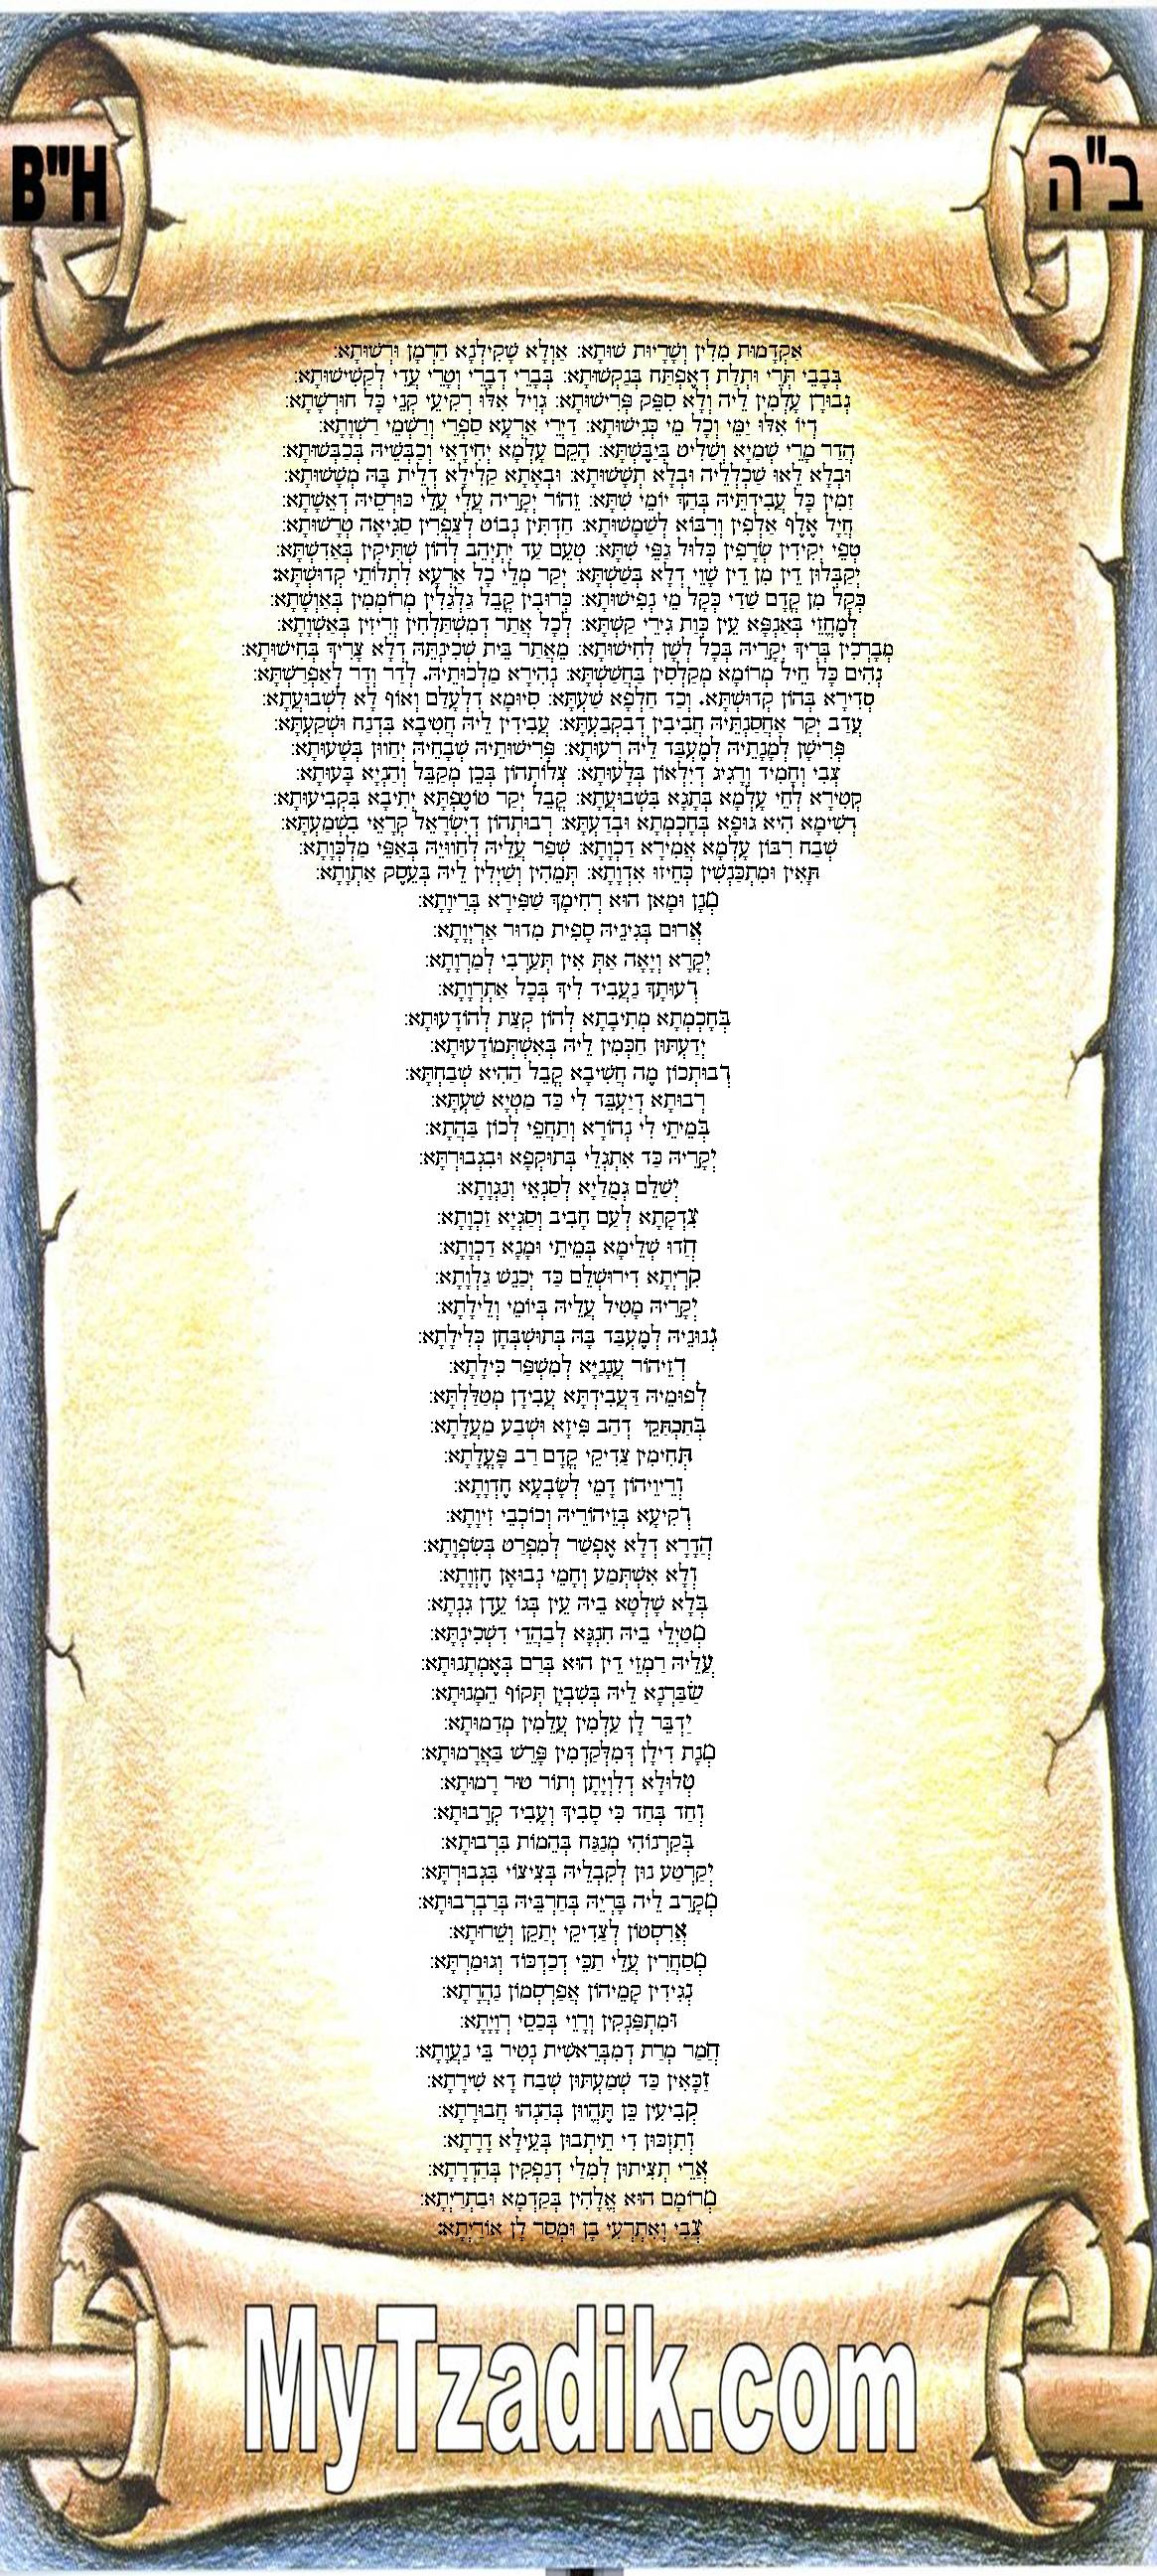 B"H
ב"ה
אַקְדָּמוּת מִלִּין וְשָׁרָיוּת שׁוּתָא: אַוְלָא שָׁקִילְנָא הַרְמָן וּרְשׁוּתָא:
בְּבָבֵי תְּרֵי וּתְלָת דְאֶפְתַּח בְּנַקְשׁוּתָא: בְּבָרֵי דְבָרֵי וְטָרֵי עֲדֵי לְקַשִׁישׁוּתָא:
גְּבוּרָן עָלְמִין לֵיהּ וְלָא סִפֵּק פְּרִישׁוּתָא: גְּוִיל אִלּוּ רְקִיעֵי קְנֵי כָּל חוּרְשָׁתָא:
דְּיוֹ אִלּוּ יַמֵּי וְכָל מֵי כְּנִישׁוּתָא: דָּיְרֵי אַרְעָא סַפְרֵי וְרַשְׁמֵי רַשְׁוָתָא:
הֲדַר מָרֵי שְׁמַיָּא וְשַׁלִּיט בְּיַבֶּשְׁתָּא: הֲקֵם עָלְמָא יְחִידָאֵי וְכַבְּשֵׁיהּ בְּכַבְּשׁוּתָא:
וּבְלָא לֵאוּ שַׁכְלְלֵיהּ וּבְלָא תְשָׁשׁוּתָא: וּבְאָתָא קַלִּילָא דְלֵית בָּהּ מְשָׁשׁוּתָא:
זַמִּין כָּל עֲבִידְתֵּיהּ בְּהַךְ יוֹמֵי שִׁתָּא: זֵהוֹר יְקָרֵיהּ עֲלֵי עֲלֵי כּוּרְסֵיהּ דְאֵשָּׁתָא:
חֲיָל אֶלֶף אַלְפִין וְרִבּוֹא לְשַׁמָּשׁוּתָא: חַדְתִּין נְבוֹט לְצַפְרִין סַגִּיאָה טְרָשׁוּתָא:
טְפֵי יְקִידִין שְׂרָפִין כְּלוּל גַּפֵּי שִׁתָּא: טְעֵם עַד יִתְיְהֵב לְהוֹן שְׁתִיקִין בְּאַדִּשְׁתָּא:
יְקַבְּלוּן דֵּין מִן דֵּין שָׁוֵי דְלָא בְּשַׁשְׁתָּא: יְקַר מְלֵי כָל אַרְעָא לִתְלוֹתֵי קְדוּשְׁתָּא:
כְּקָל מִן קֳדָם שַׁדַּי כְּקָל מֵי נְפִישׁוּתָא: כְּרוּבִין קֳבֵל גַּלְגְּלִין מְרוֹמְמִין בְּאַוְשָׁתָא:
לְמֶחֱזֵי בְּאַנְפָּא עֵין כְּוָת גִּירֵי קַשְׁתָּא: לְכָל אֲתַר דְּמִשְׁתַּלְּחִין זְרִיזִין בְּאַשְׁוָתָא:
מְבָרְכִין בְּרִיךְ יְקָרֵיהּ בְּכָל לְשָׁן לְחִישׁוּתָא: מֵאֲתַר בֵּית שְׁכִינְתֵּיהּ דְּלָא צְרִיךְ בְּחִישׁוּתָא:
נְהִים כָּל חֵיל מְרוֹמָא מְקַלְּסִין בַּחֲשַׁשְׁתָּא: נְהִירָא מַלְכוּתֵיהּ. לְדָר וְדָר לְאַפְרַשְׁתָּא:
סְדִירָא בְּהוֹן קְדוּשְׁתָּא. וְכַד חָלְפָא שַׁעְתָּא: סִיּוּמָא דִלְעָלַם וְאוֹף לָא לִשְׁבוּעֲתָא:
עֲדַב יְקַר אַחְסַנְתֵּיהּ חֲבִיבִין דְּבִקְבַעְתָּא: עָבְדִין לֵיהּ חֲטִיבָא בִּדְנַח וּשְׁקַעְתָּא:
פְּרִישָׁן לְמָנָתֵיהּ לְמֶעְבַּד לֵיהּ רְעוּתָא: פְּרִישׁוּתֵיהּ שְׁבָחֵיהּ יְחַוּוּן בְּשָׁעוּתָא:
צְבִי וְחָמִיד וְרָגִיג דְּיִלְאוֹן בְּלָעוּתָא: צְלוֹתְהוֹן בְּכֵן מְקַבֵּל וְהַנְיָא בָעוּתָא:
קְטִירָא לְחֵי עָלְמָא בְּתָגָא בִּשְׁבוּעֲתָא: קֳבֵל יְקַר טוֹטֶפְתָּא יְתִיבָא בִּקְבִיעוּתָא:
רְשִׁימָא הִיא גוּפָא בְּחָכְמְתָא וּבְדַעְתָּא: רְבוּתְהוֹן דְּיִשְׂרָאֵל קְרָאֵי בִּשְׁמַעְתָּא:
שְׁבַח רִבּוֹן עָלְמָא אֲמִירָא דַכְוָתָא: שְׁפַר עֲלֵיהּ לְחַוּוּיֵהּ בְּאַפֵּי מַלְכְּוָתָא:
תָּאִין וּמִתְכַּנְּשִׁין כְּחֵיזוּ אִדְוָתָא: תְּמֵהִין וְשַׁיְלִין לֵיהּ בְּעֵסֶק אַתְוָתָא:
מְנָן וּמָאן הוּא רְחִימָךְ שַׁפִּירָא בְּרֵיוָתָא:
אֲרוּם בְּגִינֵיהּ סָפִית מְדוֹר אַרְיְוָתָא:
יְקָרָא וְיָאָה אַתְּ אִין תְּעַרְבִי לְמַרְוָתָא:
רְעוּתֵךְ נַעֲבִיד לִיךְ בְּכָל אַתְרְוָתָא:
בְּחָכְמְתָא מְתִיבָתָא לְהוֹן קְצָת לְהוֹדָעוּתָא:
יְדַעְתּוּן חַכְּמִין לֵיהּ בְּאִשְׁתְּמוֹדָעוּתָא:
רְבוּתְכוֹן מֶה חֲשִׁיבָא קֳבֵל הַהִיא שְׁבַחְתָּא:
רְבוּתָא דְיַעֲבֵד לִי כַּד מַטְיָא שַׁעְתָּא:
בְּמֵיתֵי לִי נְהוֹרָא וְתַחֲפֵי לְכוֹן בַּהֲתָא:
יְקָרֵיהּ כַּד אִתְגְּלֵי בְּתוּקְפָא וּבִגְבוּרְתָּא:
יְשַׁלֵּם גְּמֻלַיָּא לְסַנְאֵי וְנַגְוָתָא:
צִדְקָתָא לְעַם חָבִיב וְסַגְיָא זַכְוָתָא:
חֲדוּ שְׁלֵימָא בְּמֵיתֵי וּמָנָא דַכְוָתָא:
קִרְיְתָא דִירוּשְׁלֵם כַּד יְכַנֵּשׁ גַּלְוָתָא:
יְקָרֵיהּ מַטִּיל עֲלֵיהּ בְּיוֹמֵי וְלֵילְתָא:
גְּנוּנֵיהּ לְמֶעְבַּד בָּהּ בְּתוּשְׁבְּחָן כְּלִילָתָא:
דְּזֵיהוֹר עֲנָנַיָּא לְמִשְׁפַּר כִּילָתָא:
לְפוּמֵיהּ דַּעֲבִידְתָּא עֲבִידָן מְטַלַּלְתָּא:
בְּתַכְתְּקֵי דְהַב פִּיזָא וּשְׁבַע מַעֲלָתָא:
תְּחִימִין צַדִּיקֵי קֳדָם רַב פָּעֳלָתָא:
וְרֵיוֵיהוֹן דָּמֵי לְשָׂבְעָא חֶדְוָתָא:
רְקִיעָא בְּזֵיהוֹרֵיהּ וְכוֹכְבֵי זִיוָתָא:
הֲדָרָא דְּלָא אֶפְשַׁר לְמִפְרַט בְּשִׂפְוָתָא:
וְלָא אִשְׁתְּמַע וְחָמֵי נְבוּאָן חֶזְוָתָא:
בְּלָא שָׁלְטָא בֵיהּ עֵין בְּגוֹ עֵדֶן גִּנְּתָא:
מְטַיְּלֵי בֵיהּ חִנְגָּא לְבַהֲדֵי דִשְׁכִינְתָּא:
עֲלֵיהּ רַמְזֵי דֵּין הוּא בְּרַם בְּאֶמְתָּנוּתָא:
שַׂבַּרְנָא לֵיהּ בְּשִׁבְיָן תְּקוֹף הֵמָנוּתָא:
יַדְבֵּר לָן עָלְמִין עֲלֵמִין מְדַמּוּתָא:
מְנָת דִּילָן דְּמִלְּקַדְמִין פָּרֵשׁ בַּאֲרָמוּתָא:
טְלוּלָא דְלִוְיָתָן וְתוֹר טוּר רָמוּתָא:
וְחַד בְּחַד כִּי סָבִיךְ וְעָבִיד קְרָבוּתָא:
בְּקַרְנוֹהִי מְנַגַּח בְּהֵמוֹת בִּרְבוּתָא:
יְקַרְטַע נוּן לְקִבְלֵיהּ בְּצִיצוֹי בִּגְבוּרְתָּא:
מְקָרֵב לֵיהּ בָּרְיֵהּ בְּחַרְבֵּיהּ בְּרַבְרְבוּתָא:
אֲרִסְטוֹן לְצַדִּיקֵי יְתַקֵּן וְשֵׁרוּתָא:
מְסַחֲרִין עֲלֵי תַכֵּי דְּכַדְכּוֹד וְגוּמַרְתָּא:
נְגִידִין קָמֵיהוֹן אֲפַרְסְמוֹן נַהֲרָתָא:
וּמִתְפַּנְּקִין וְרָווֹי בְּכַסֵּי רְוָיָתָא:
חֲמַר מְרַת דְּמִבְּרֵאשִׁית נְטִיר בֵּי נַעֲוָתָא:
זַכָּאִין כַּד שְׁמַעְתּוּן שְׁבַח דָּא שִׁירָתָא:
קְבִיעִין כֵּן תֶּהֱווּן בְּהַנְהוּ חֲבוּרָתָא:
וְתִזְכּוּן דִּי תֵיתְבוּן בְּעֵילָא דָרָתָא:
אֲרֵי תְצִיתוּן לְמִלַּי דְּנָפְקִין בְּהַדְרָתָא:
מְרוֹמָם הוּא אֱלָהִין בְּקַדְמָא וּבַתְרַיְתָא:
צְבִי וְאִתְרְעִי בָן וּמְסַר לָן אוֹרַיְתָא:
MyTzadik.com